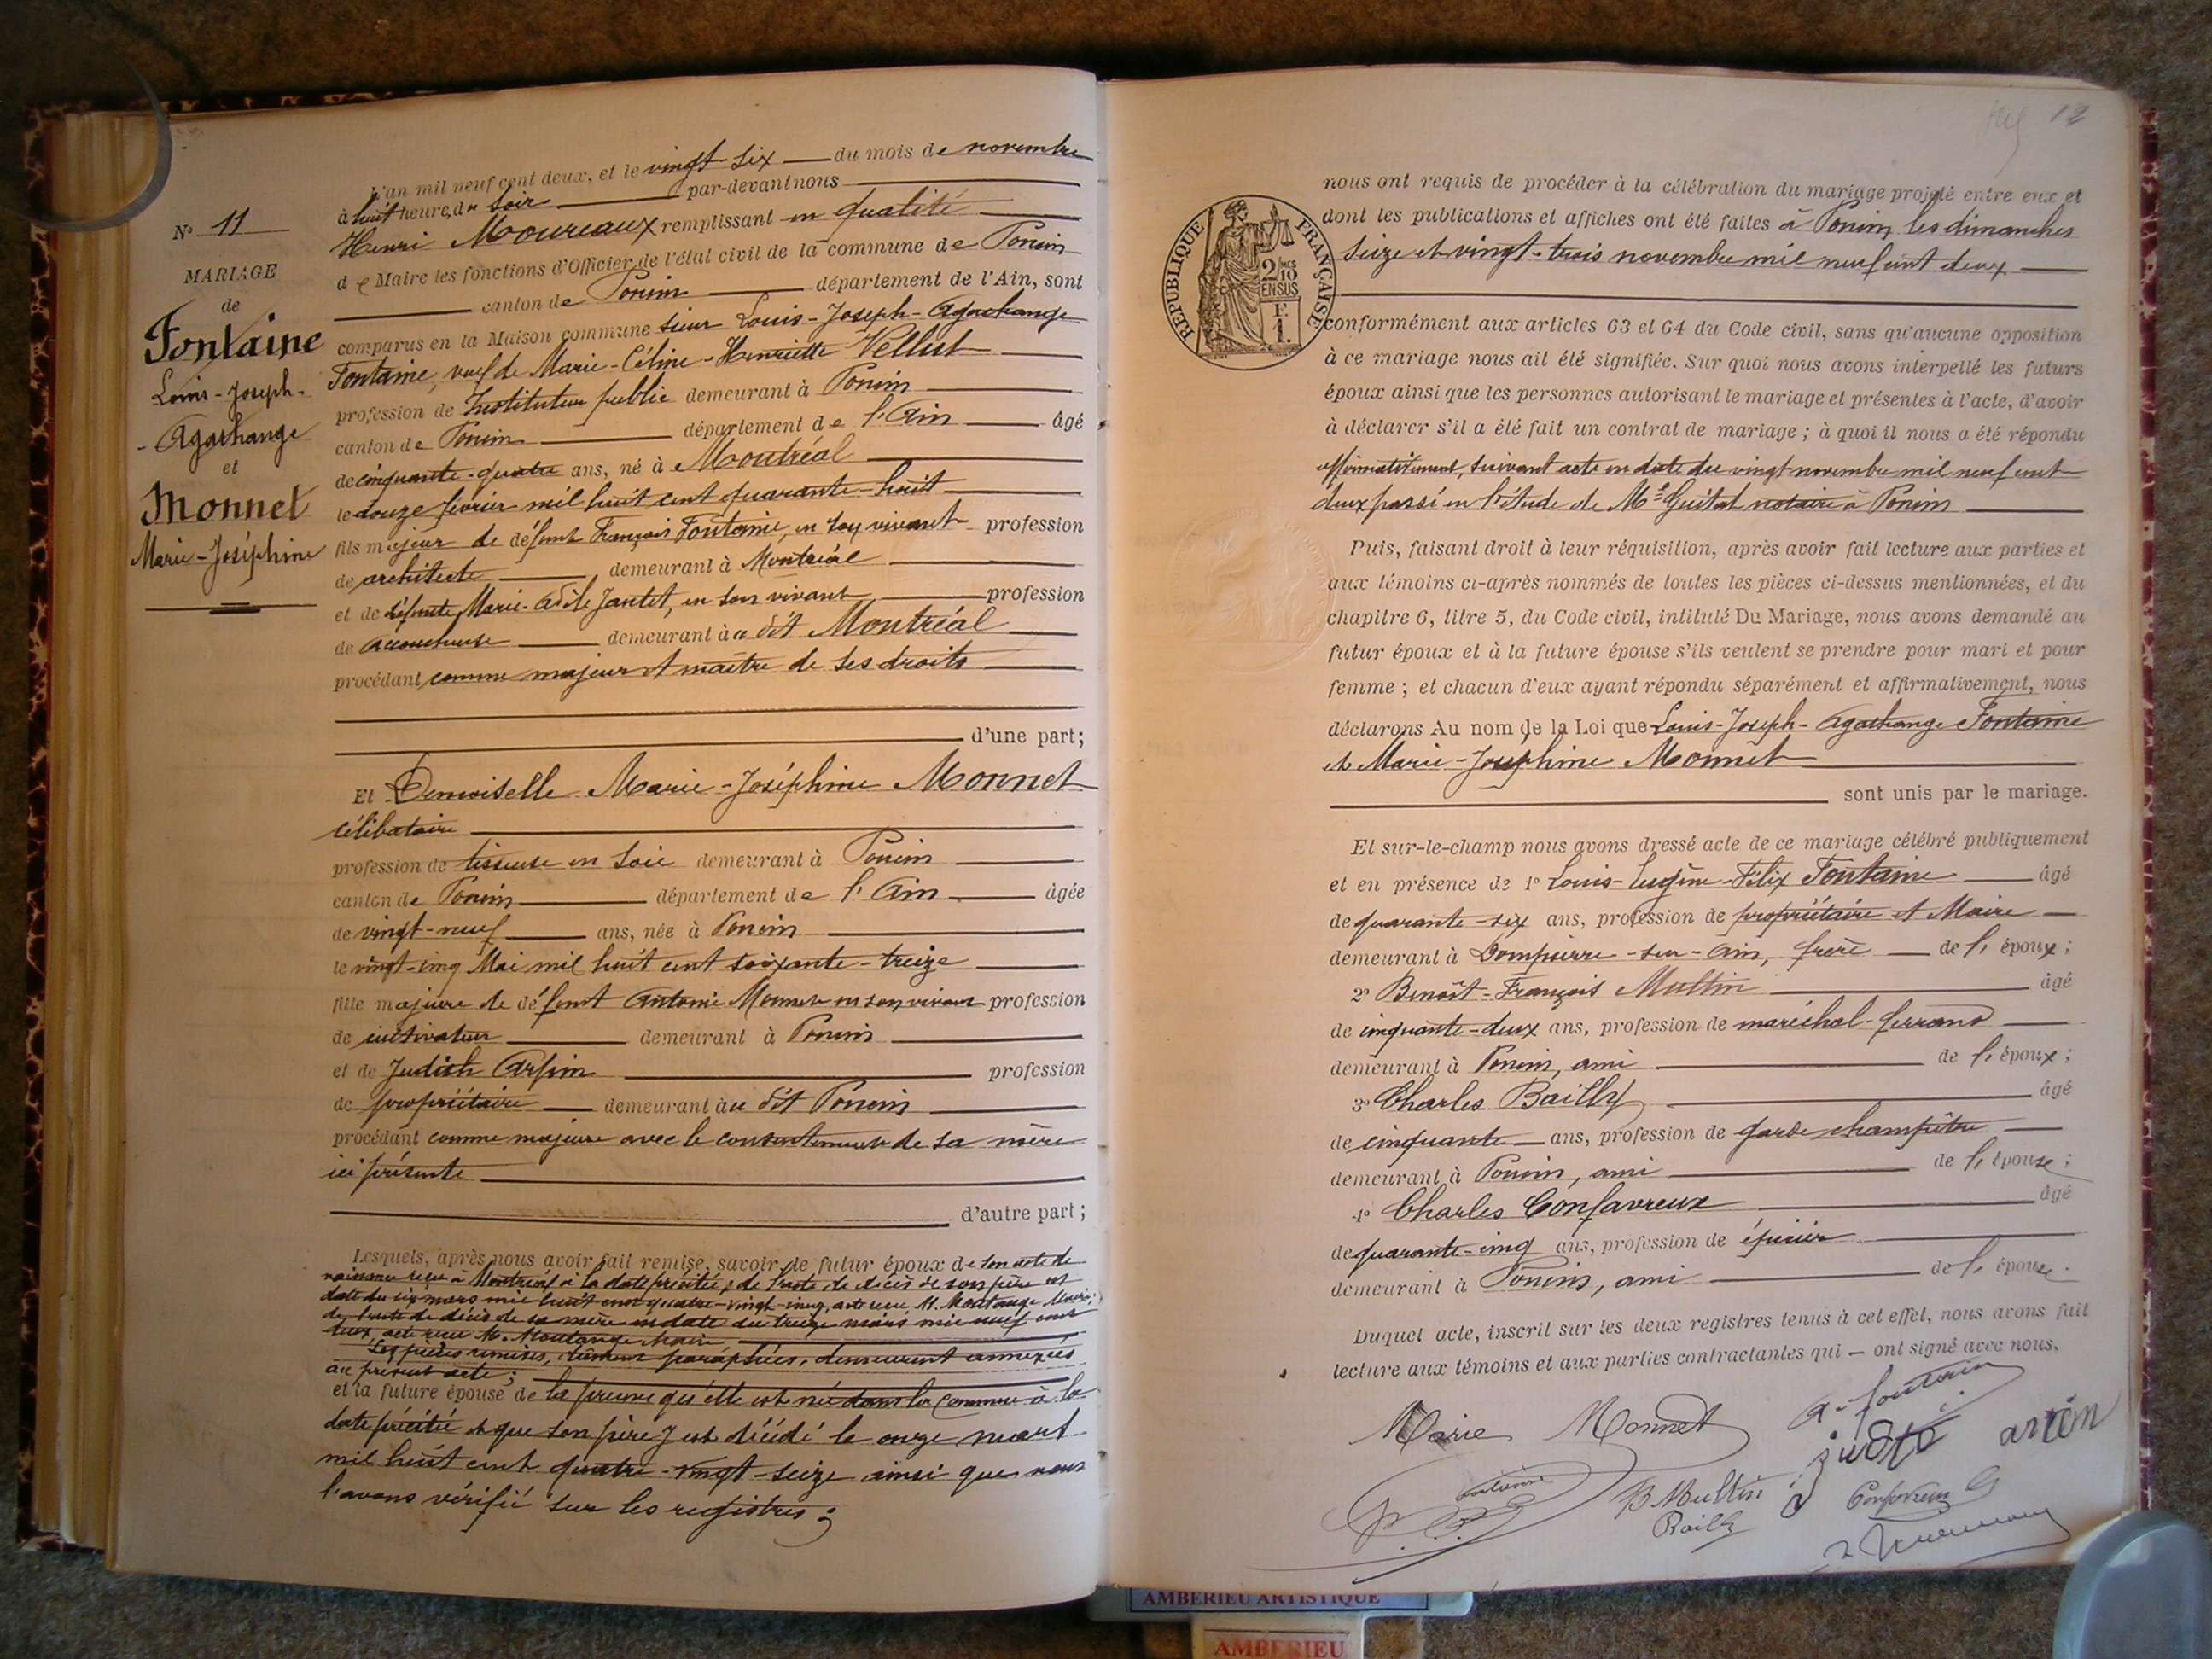 N° 11
MARIAGE
de
Fontaine
Louis-Joseph-
-Agathange
et
Monnet
Marie-Joséphine
L'an mil neuf cent deux, et le vingt six du mois de novembre
à huit heures du soir par-devant nous
Henri Moureaux remplissant en qualité
de Maire les fonctions d'Officier de l'état civil de la commune de Poncin
canton de Poncin département de l'Ain, sont
comparus en la Maison commune sieur Louis-Joseph-Agathange
Fontaine, veuf de Marie-Céline-Henriette Velliet
profession de Instituteur public demeurant à Poncin
canton de Poncin département de l'Ain âgé
de cinquante-quatre ans, né à Montréal
le douze février mil huit cent quarante-huit
fils majeur de défunt François Fontaine, en son vivant profession
de architecte demeurant à Montréal
et de défunte Marie-Adèle Jantet, en son vivant profession
de accoucheuse demeurant au dit Montréal
procédant comme majeur et maître de ses droits
d'une part;
Et Demoiselle Marie-Joséphine Monnet
célibataire
profession de tisseuse en soie demeurant à Poncin
canton de Poncin département de l'Ain âgée
de vingt-neuf ans, née à Poncin
le vingt-cinq Mai mil huit cent soixante-treize
fille majeure de défunt Antoine Monnet en son vivant profession
de cultivateur demeurant à Poncin
et de Judith Arpin profession
de propriétaire demeurant au dit Poncin
procédant comme majeure avec le consentement de sa mère
ici présente
d'autre part;
Lesquels, après nous avoir fait remise, savoir, le futur époux de son acte de
naissance reçu à Montréal à la date précitée; de l'acte de décès de son père en
date du six mars mil huit cent quatre-vingt-cinq, acte reçu M. Moutange Maire;
de l'acte de décès de sa mère en date du treize mars mil neuf cent
deux, acte reçu M. Moutange Maire
Les pièces remises, dûment paraphées, demeurent annexées
au présent acte;
et la future épouse de la preuve qu'elle est née dans la Commune à la
date précitée et que son père y est décédé le onze mars
mil huit cent quatre-vingt-seize ainsi que nous
l'avons vérifié sur les registres;
12
RÉPUBLIQUE FRANÇAISE
2/10 EN SUS
1 F.
nous ont requis de procéder à la célébration du mariage projeté entre eux et
dont les publications et affiches ont été faites à Poncin les dimanches
seize et vingt-trois novembre mil neuf cent deux
conformément aux articles 63 et 64 du Code civil, sans qu'aucune opposition
à ce mariage nous ait été signifiée. Sur quoi nous avons interpellé les futurs
époux ainsi que les personnes autorisant le mariage et présentes à l'acte, d'avoir
à déclarer s'il a été fait un contrat de mariage; à quoi il nous a été répondu
affirmativement, suivant acte en date du vingt novembre mil neuf cent
deux passé en l'étude de Me Guitat notaire à Poncin
Puis, faisant droit à leur réquisition, après avoir fait lecture aux parties et
aux témoins ci-après nommés de toutes les pièces ci-dessus mentionnées, et du
chapitre 6, titre 5, du Code civil, intitulé Du Mariage, nous avons demandé au
futur époux et à la future épouse s'ils veulent se prendre pour mari et pour
femme; et chacun d'eux ayant répondu séparément et affirmativement, nous
déclarons Au nom de la Loi que Louis-Joseph-Agathange Fontaine
et Marie-Joséphine Monnet
sont unis par le mariage.
Et sur-le-champ nous avons dressé acte de ce mariage célébré publiquement
et en présence de 1° Louis-Eugène-Félix Fontaine âgé
de quarante-six ans, profession de propriétaire et Maire
demeurant à Dompierre-sur-Ain, frère de l'époux;
2° Benoît-François Multin âgé
de cinquante-deux ans, profession de maréchal-ferrant
demeurant à Poncin, ami de l'époux;
3° Charles Bailly âgé
de cinquante ans, profession de garde champêtre
demeurant à Poncin, ami de l'épouse;
4° Charles Confavreux âgé
de quarante-cinq ans, profession de épicier
demeurant à Poncin, ami de l'épouse.
Duquel acte, inscrit sur les deux registres tenus à cet effet, nous avons fait
lecture aux témoins et aux parties contractantes qui — ont signé avec nous.
Marie Monnet
A. Fontaine
judit arpin
Fontaine
B Multin
Bailly
Confavreux
AMBERIEU ARTISTIQUE
AMBERIEU